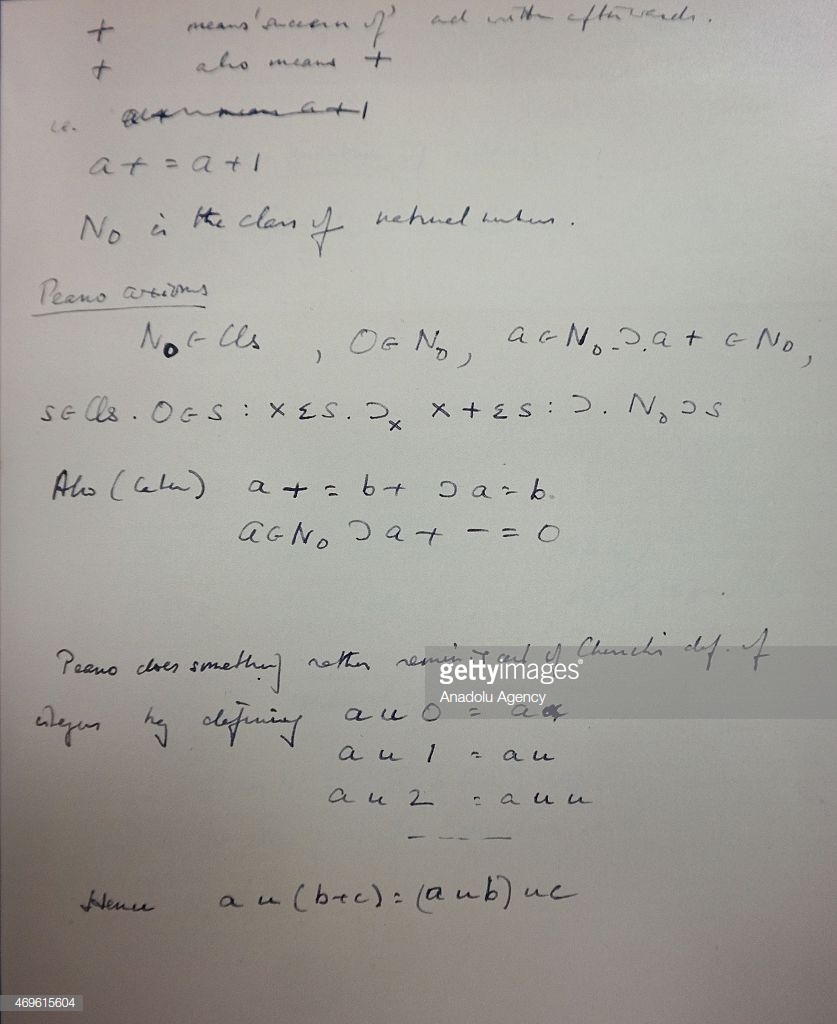 + means 'successor of' and written afterwards.
+ also means +
i.e. a+ means a+1
a + = a + 1
N₀ is the class of natural numbers.
Peano axioms
N₀ ϵ Cls , 0 ϵ N₀, a ϵ N₀ .Ɔ. a + ϵ N₀,
s ϵ Cls . 0 ϵ s : x ε s . Ɔₓ x + ε s : Ɔ . N₀ Ɔ s
Also (later) a + = b + Ɔ a = b.
a ϵ N₀ Ɔ a + – = 0
Peano does something rather reminiscent of Church's def. of
integers by defining a u 0 = a
a u 1 = a u
a u 2 = a u u
– – –
Hence a u (b+c) = (a u b) u c
gettyimages®
Anadolu Agency
469615604